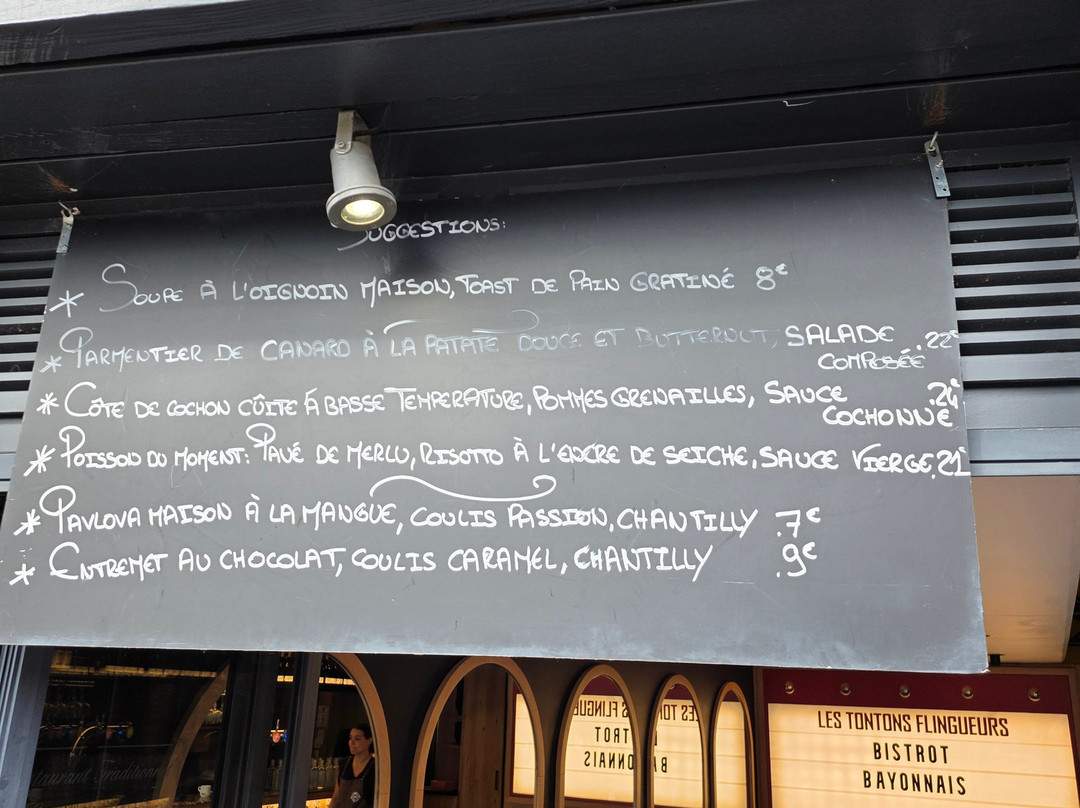 SUGGESTIONS:
* SOUPE À L'OIGNOIN MAISON, TOAST DE PAIN GRATINÉ 8€
* PARMENTIER DE CANARD À LA PATATE DOUCE ET BUTTERNUT, SALADE .22€
COMPOSÉE
* CÔTE DE COCHON CÛITE À BASSE TEMPERATURE, POMMES GRENAILLES, SAUCE .24€
COCHONNE
* POISSON DU MOMENT: PAVÉ DE MERLU, RISOTTO À L'ENCRE DE SEICHE, SAUCE VIERGE.21€
* PAVLOVA MAISON À LA MANGUE, COULIS PASSION, CHANTILLY .7€
* ENTREMET AU CHOCOLAT, COULIS CARAMEL, CHANTILLY .9€
LES TONTONS FLINGUEURS
BISTROT
BAYONNAIS